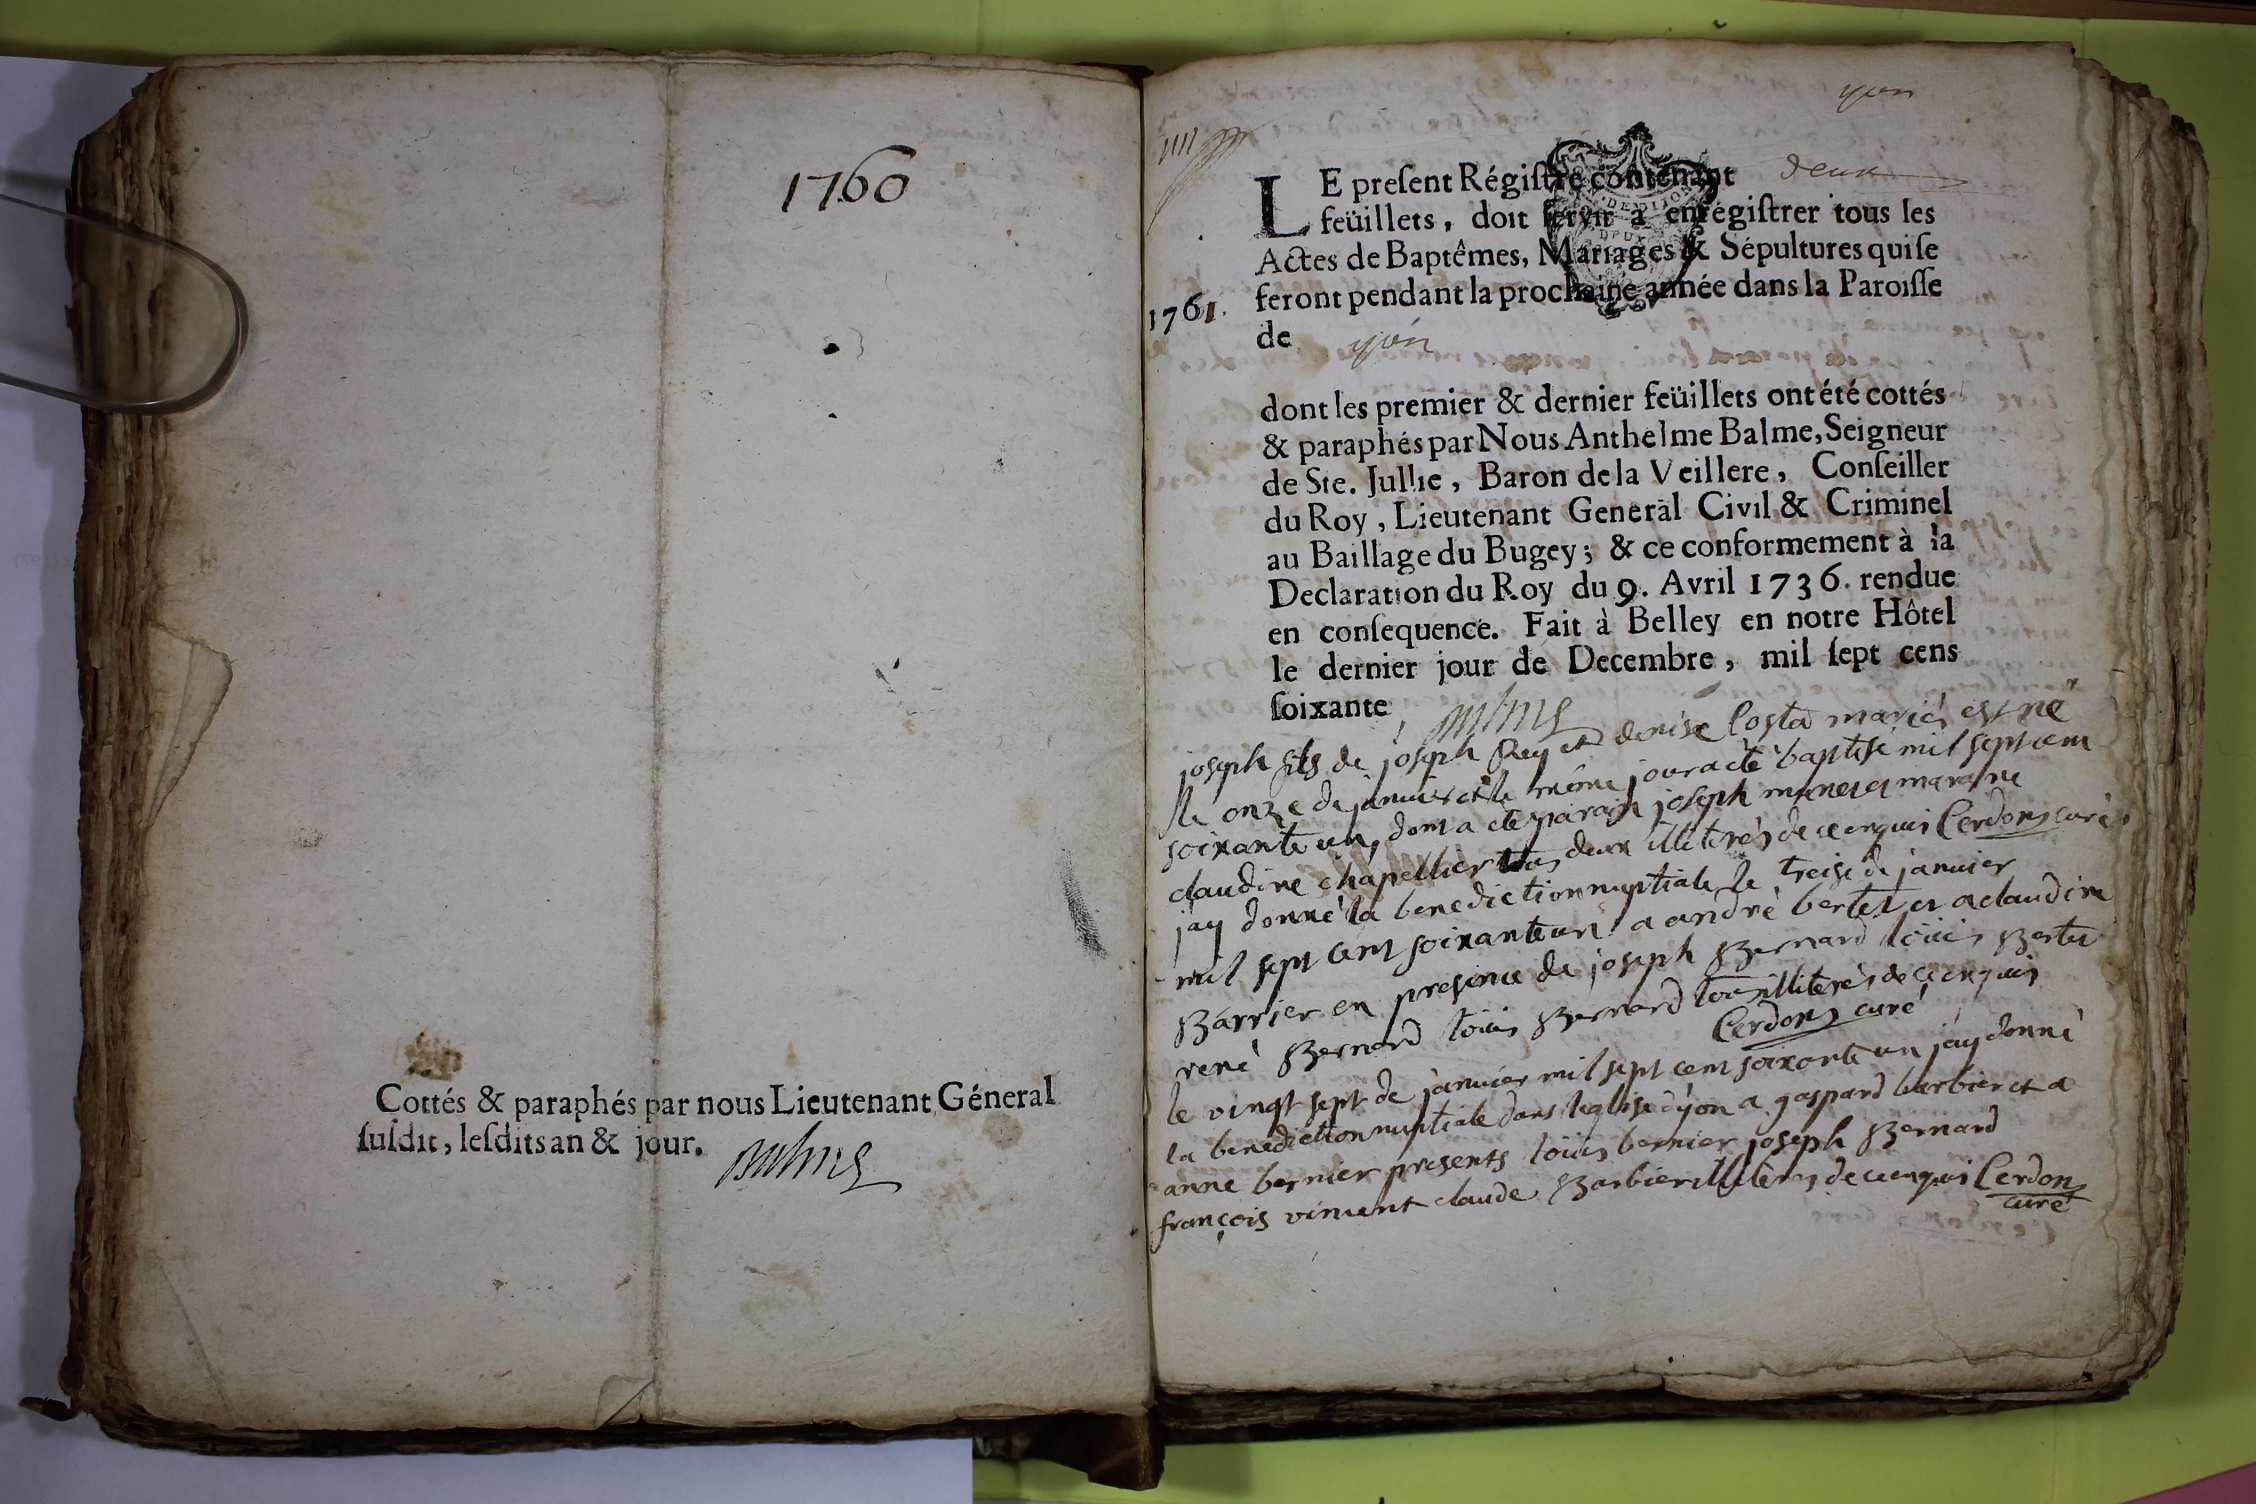 1760
Cottés & paraphés par nous Lieutenant Géneral
ſuſdit, leſdits an & jour.
yon
LE preſent Régiſtre contenant deux
feüillets, doit ſervir à enrégiſtrer tous les
Actes de Baptêmes, Mariages & Sépultures qui ſe
feront pendant la prochaine année dans la Paroiſſe
1761.
de yon
dont les premier & dernier feüillets ont été cottés
& paraphés par Nous Anthelme Balme, Seigneur
de Ste. Jullie, Baron de la Veillere, Conſeiller
du Roy, Lieutenant General Civil & Criminel
au Baillage du Bugey; & ce conformement à la
Declaration du Roy du 9. Avril 1736. rendue
en conſequence. Fait à Belley en notre Hôtel
le dernier jour de Decembre, mil ſept cens
ſoixante
joseph fils de joseph Rey et denise Costa mariés est né
le onze de janvier et le même jour a été baptisé mil sept cent
soixante un, dont a été parain joseph et maraine
claudine chapellier tous deux illiterés de ce enquis Cerdon curé
jay donné la benediction nuptiale le treise de janvier
mil sept cent soixante un a andré bertet et a claudine
Barrier en presence de joseph Bernard loüis Bertet
rené Bernard loüis Bernard tous illiterés de ce enquis
Cerdon curé
le vingt sept de janvier mil sept cent soixante un jay donné
la benediction nuptiale dans leglise dyon a gaspard barbier et a
anne bernier presents loüis bernier joseph Bernard
françois vincent claude Barbier illiterés de ce enquis Cerdon
curé